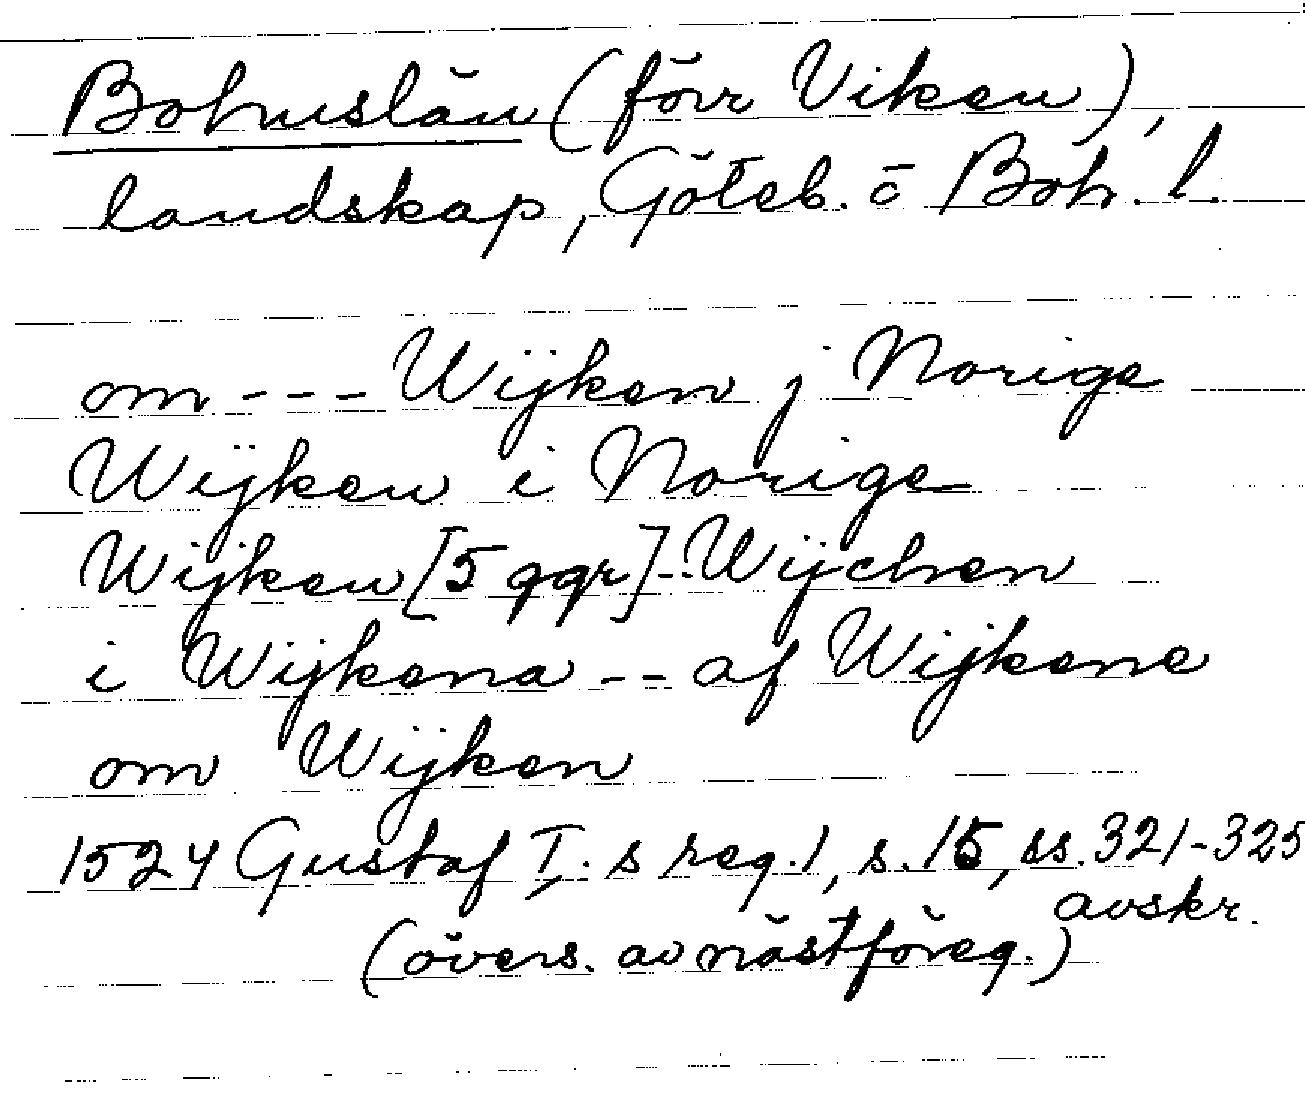 Bohuslän (förr Viken),
landskap, Göteb. o Boh. l.
om --- Wijken j Norige
Wijken i Norige
Wijken [5 ggr] -- Wijchen
i Wijkena -- af Wijkene
om Wijken
1524 Gustaf I:s reg. 1, s. 15, ss. 321-325
avskr.
(övers. av näst föreg.)